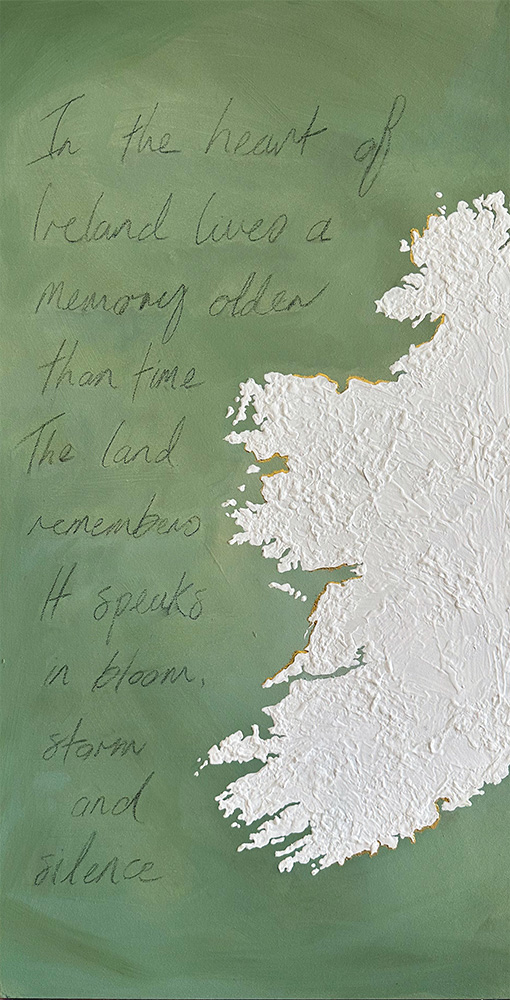 In the heart of
Ireland lives a
memory older
than time
The land
remembers
It speaks
in bloom,
storm
and
silence